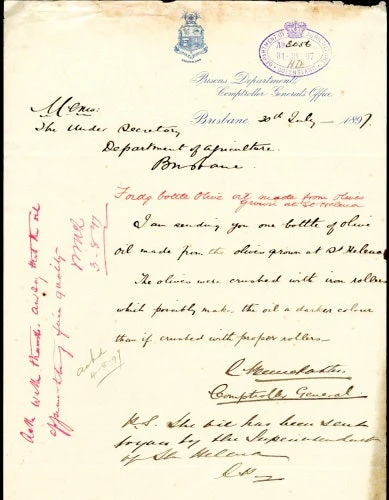 DEPARTMENT OF AGRICULTURE
3056
QUEENSLAND
Prisons Department
Comptroller General's Office
Brisbane 30th July 1897.
Memo:
The Under Secretary
Department of Agriculture
Brisbane
Fordg bottle Olive oil made from olives
grown at St Helena
I am sending you one bottle of olive
oil made from the olives grown at St Helena
The olives were crushed with iron rollers
which possibly makes the oil a darker colour
than if crushed with proper rollers.
Comptroller General.
P.S. The oil has been sent
to you by the Superintendent
of St Helena
Ack with thanks. & say that the oil
is of fine quality
3-8-97
ackd
4-8-97